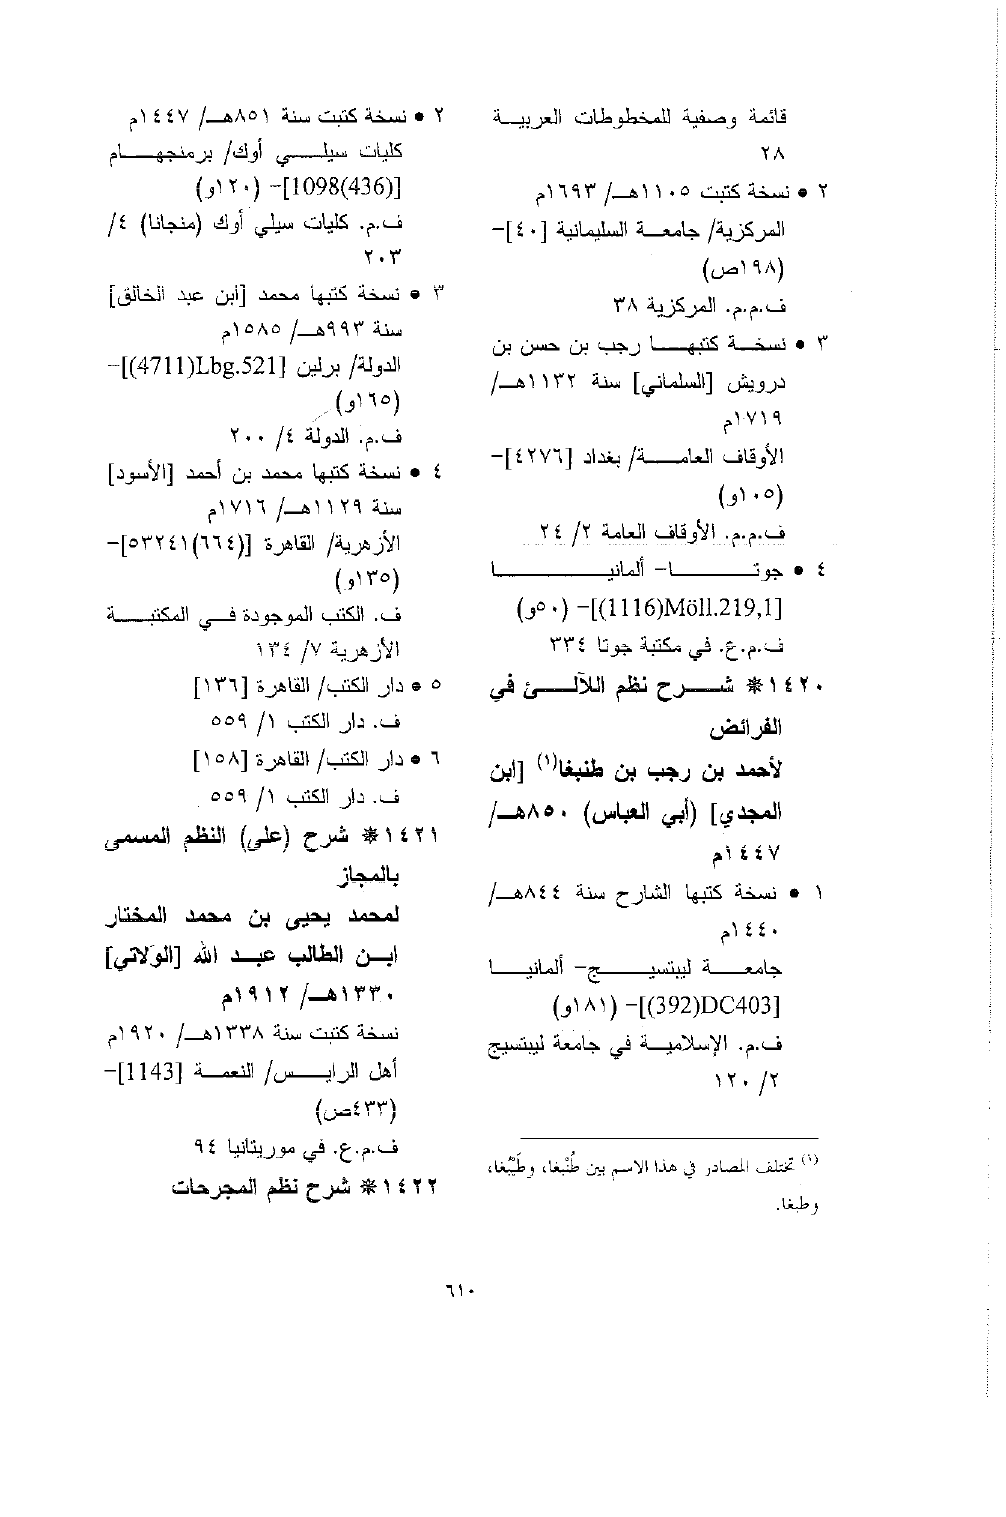 قائمة وصفية للمخطوطات العربية
٢٨
٢ • نسخة كتبت ١١٠٥هـ/ ١٦٩٣م
المركزية/ جامعة السليمانية [٤٠]-
(١٩٨ص)
ف.م.م. المركزية ٣٨
٣ • نسخة كتبها رجب بن حسن بن
درويش [السلماني] سنة ١١٣٢هـ/
١٧١٩م
الأوقاف العامة/ بغداد [٤٢٧٦]-
(١٠٥و)
ف.م.م. الأوقاف العامة ٢/ ٢٤
٤ • جوتا- ألمانيا
[Möll.219,1(1116)]- (٥٠و)
ف.م.ع. في مكتبة جوتا ٣٣٤
١٤٢٠* شرح نظم اللآلئ في
الفرائض
لأحمد بن رجب بن طنبغا(١) [ابن
المجدي] (أبي العباس) ٨٥٠هـ/
١٤٤٧م
١ • نسخة كتبها الشارح سنة ٨٤٤هـ/
١٤٤٠م
جامعة ليبتسيج- ألمانيا
[DC403(392)]- (١٨١و)
ف.م. الإسلامية في جامعة ليبتسيج
٢/ ١٢٠
(١) تختلف المصادر في هذا الاسم بين طُنْبغا، وطَيْبُغا،
وطبغا.
٢ • نسخة كتبت سنة ٨٥١هـ/ ١٤٤٧م
كليات سيلي أوك/ برمنجهام
[1098(436)]- (١٢٠و)
ف.م. كليات سيلي أوك (منجانا) ٤/
٢٠٣
٣ • نسخة كتبها محمد [ابن عبد الخالق]
سنة ٩٩٣هـ/ ١٥٨٥م
الدولة/ برلين [Lbg.521(4711)]-
(١٦٥و)
ف.م. الدولة ٤/ ٢٠٠
٤ • نسخة كتبها محمد بن أحمد [الأسود]
سنة ١١٢٩هـ/ ١٧١٦م
الأزهرية/ القاهرة [(٦٦٤)٥٣٢٤١]-
(١٣٥و)
ف. الكتب الموجودة في المكتبة
الأزهرية ٧/ ١٣٤
٥ • دار الكتب/ القاهرة [١٣٦]
ف. دار الكتب ١/ ٥٥٩
٦ • دار الكتب/ القاهرة [١٥٨]
ف. دار الكتب ١/ ٥٥٩
١٤٢١* شرح (على) النظم المسمى
بالمجاز
لمحمد يحيى بن محمد المختار
ابن الطالب عبد الله [الولاتي]
١٣٣٠هـ/ ١٩١٢م
نسخة كتبت سنة ١٣٣٨هـ/ ١٩٢٠م
أهل الرايس/ النعمة [1143]-
(٤٣٣ص)
ف.م.ع. في موريتانيا ٩٤
١٤٢٢* شرح نظم المجرحات
٦١٠